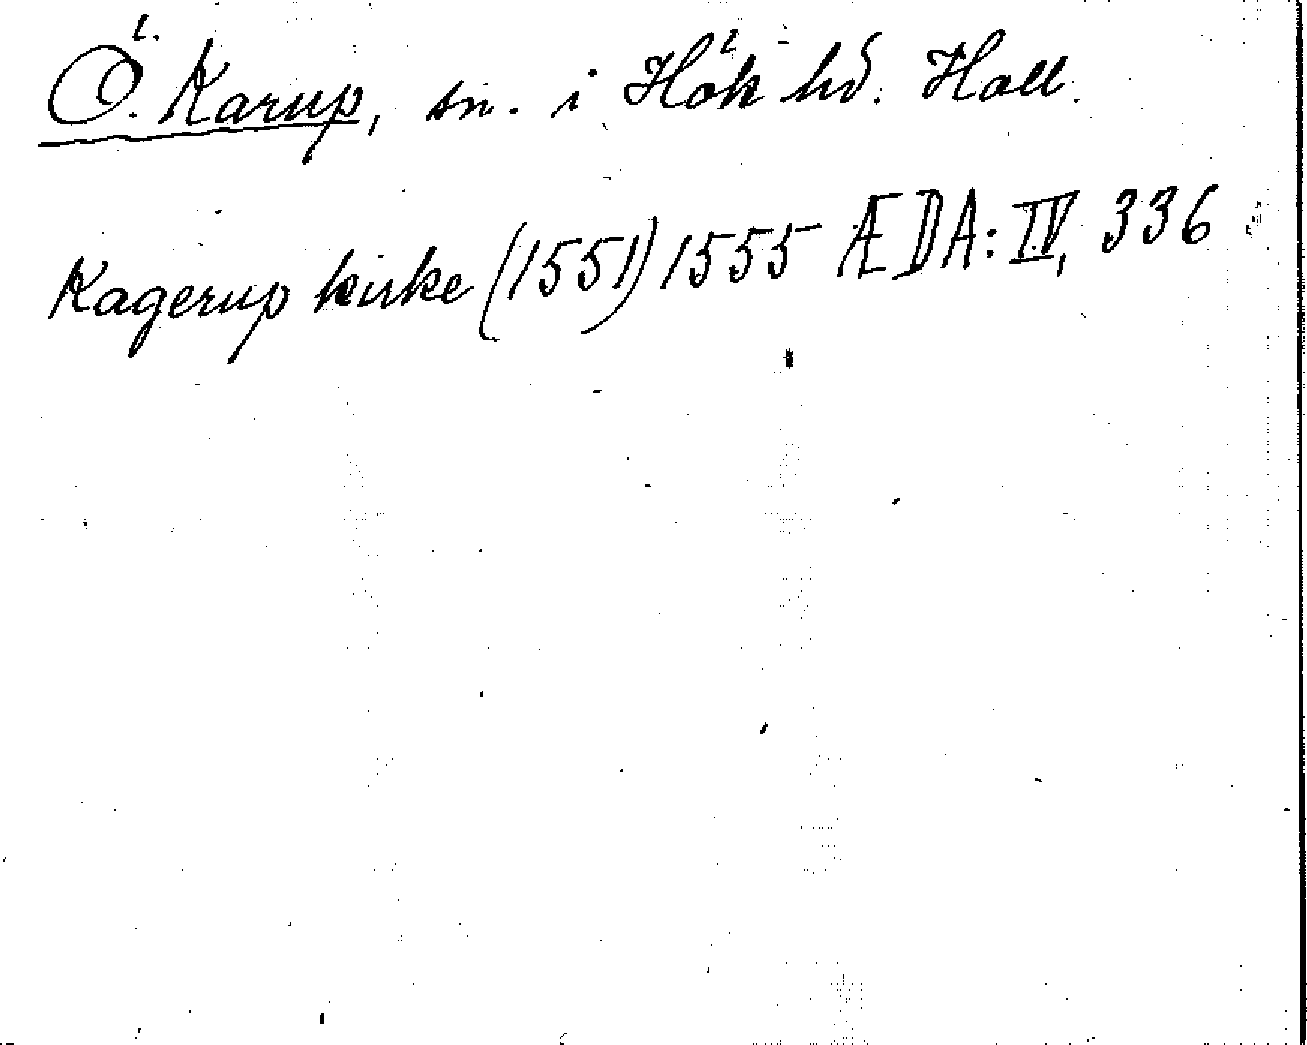 Ö. Karup, sn. i Hök hd. Hall.
Kagerup kirke (1551) 1555 ÆDA: IV, 336